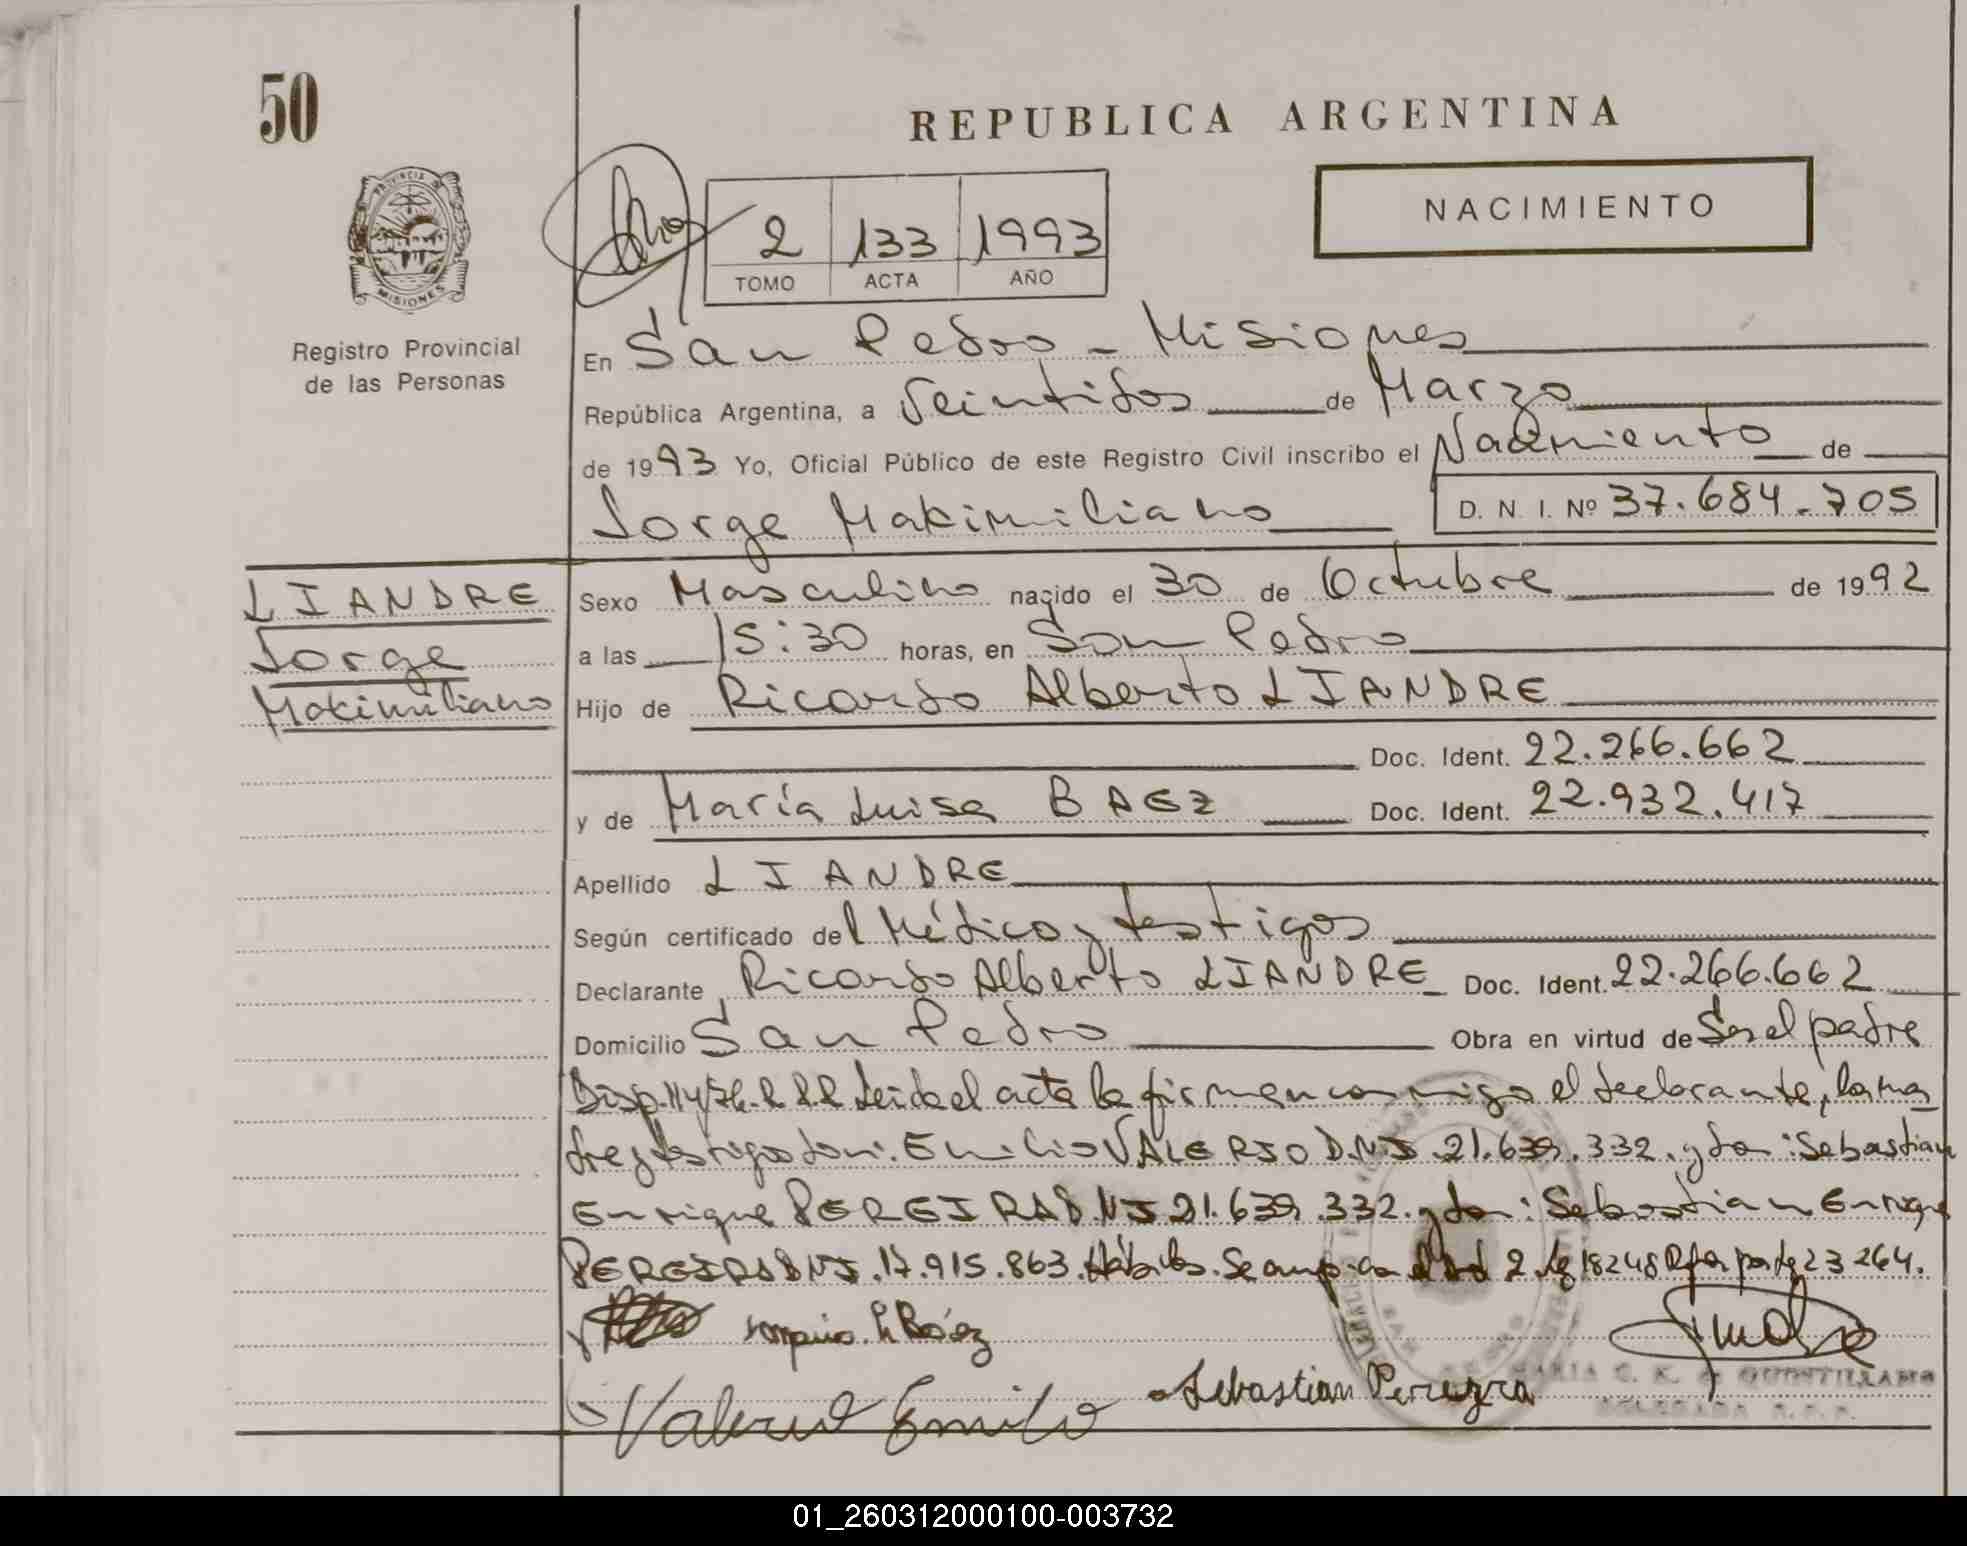 50
REPUBLICA ARGENTINA
PROVINCIA DE
MISIONES
NACIMIENTO
2 133 1993
TOMO ACTA AÑO
Registro Provincial
de las Personas
En San Pedro - Misiones
República Argentina, a Veintidos de Marzo
de 1993 Yo, Oficial Público de este Registro Civil inscribo el Nacimiento de
Jorge Makimiliano D. N. I. Nº 37.684.705
LIANDRE
Jorge
Makimiliano
Sexo Masculino nacido el 30 de Octubre de 1992
a las 15:30 horas, en San Pedro
Hijo de Ricardo Alberto LIANDRE
Doc. Ident. 22.266.662
y de María Luisa BAEZ Doc. Ident. 22.932.417
Apellido LIANDRE
Según certificado del Médico y testigos
Declarante Ricardo Alberto LIANDRE Doc. Ident. 22.266.662
Domicilio San Pedro Obra en virtud de Ser el padre
Disp. 114/76. Leida el acta la firman conmigo el declarante, la ma
dre y testigos don: Emilio VALERIO D.N.I. 21.639.332. y don: Sebastian
Enrique PEREIRA D.N.I 21.639.332. y don: Sebastian Enrique
PEREIRA D.N.I. 17.915.863. Hábiles. 2 18248 23264.
Báez
Valerio Emilio
Sebastian Pereyra
MARIA C. K. de QUINTILLANO
DELEGADA R.P.P.
01_260312000100-003732